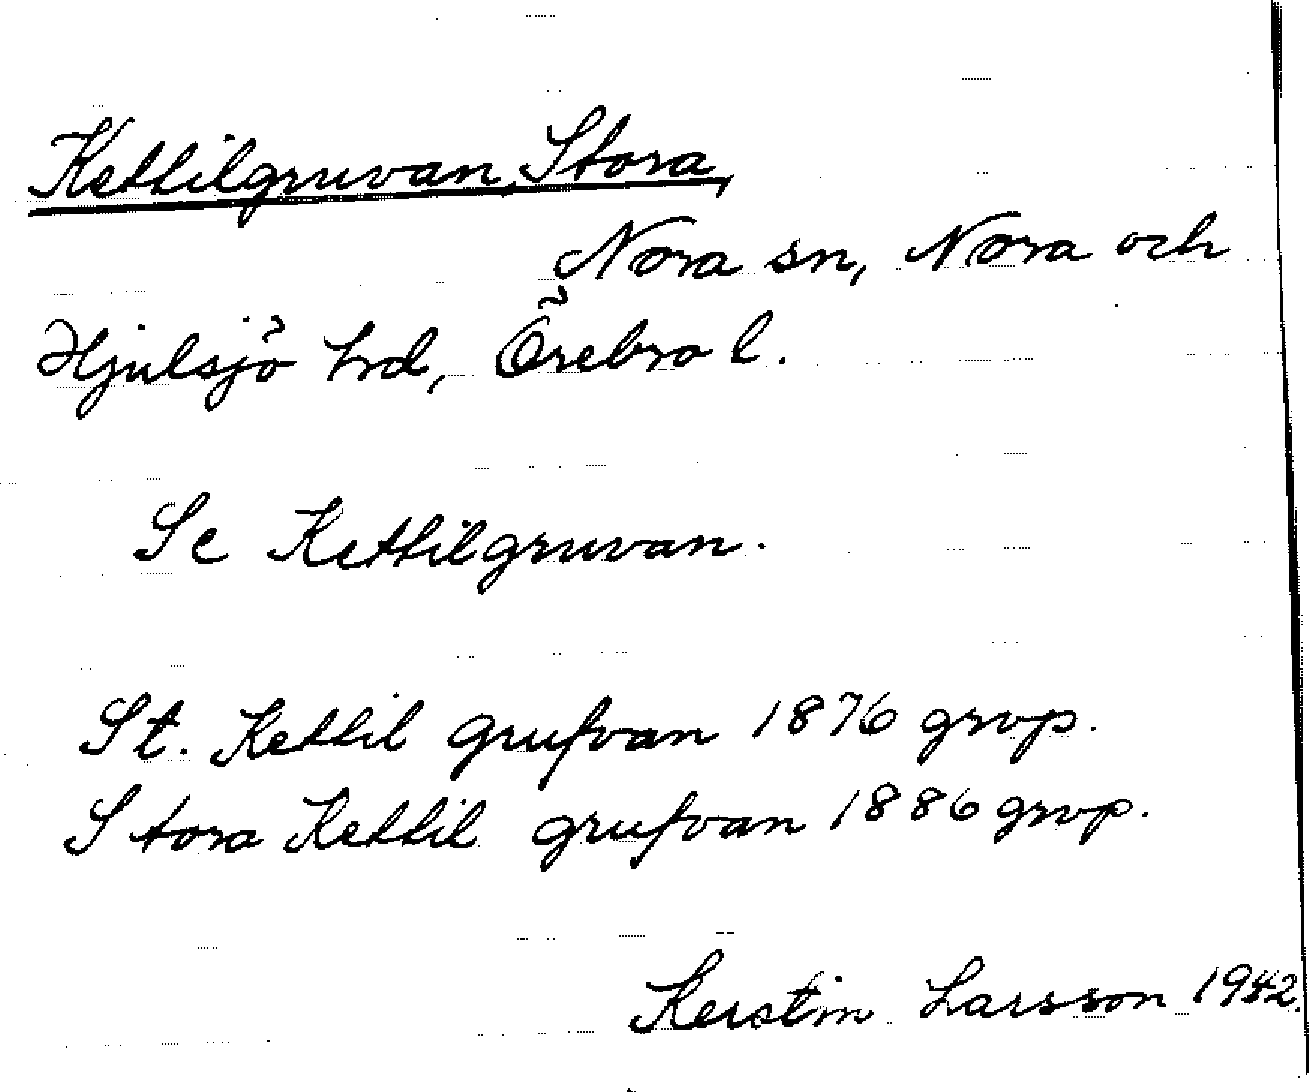 Kettilgruvan, Stora,
Nora sn, Nora och
Hjulsjö hrd, Örebro l.
Se Kettilgruvan.
St. Kettil grufvan 1876 grvp.
Stora Kettil grufvan 1886 grvp.
Kerstin Larsson 1942.